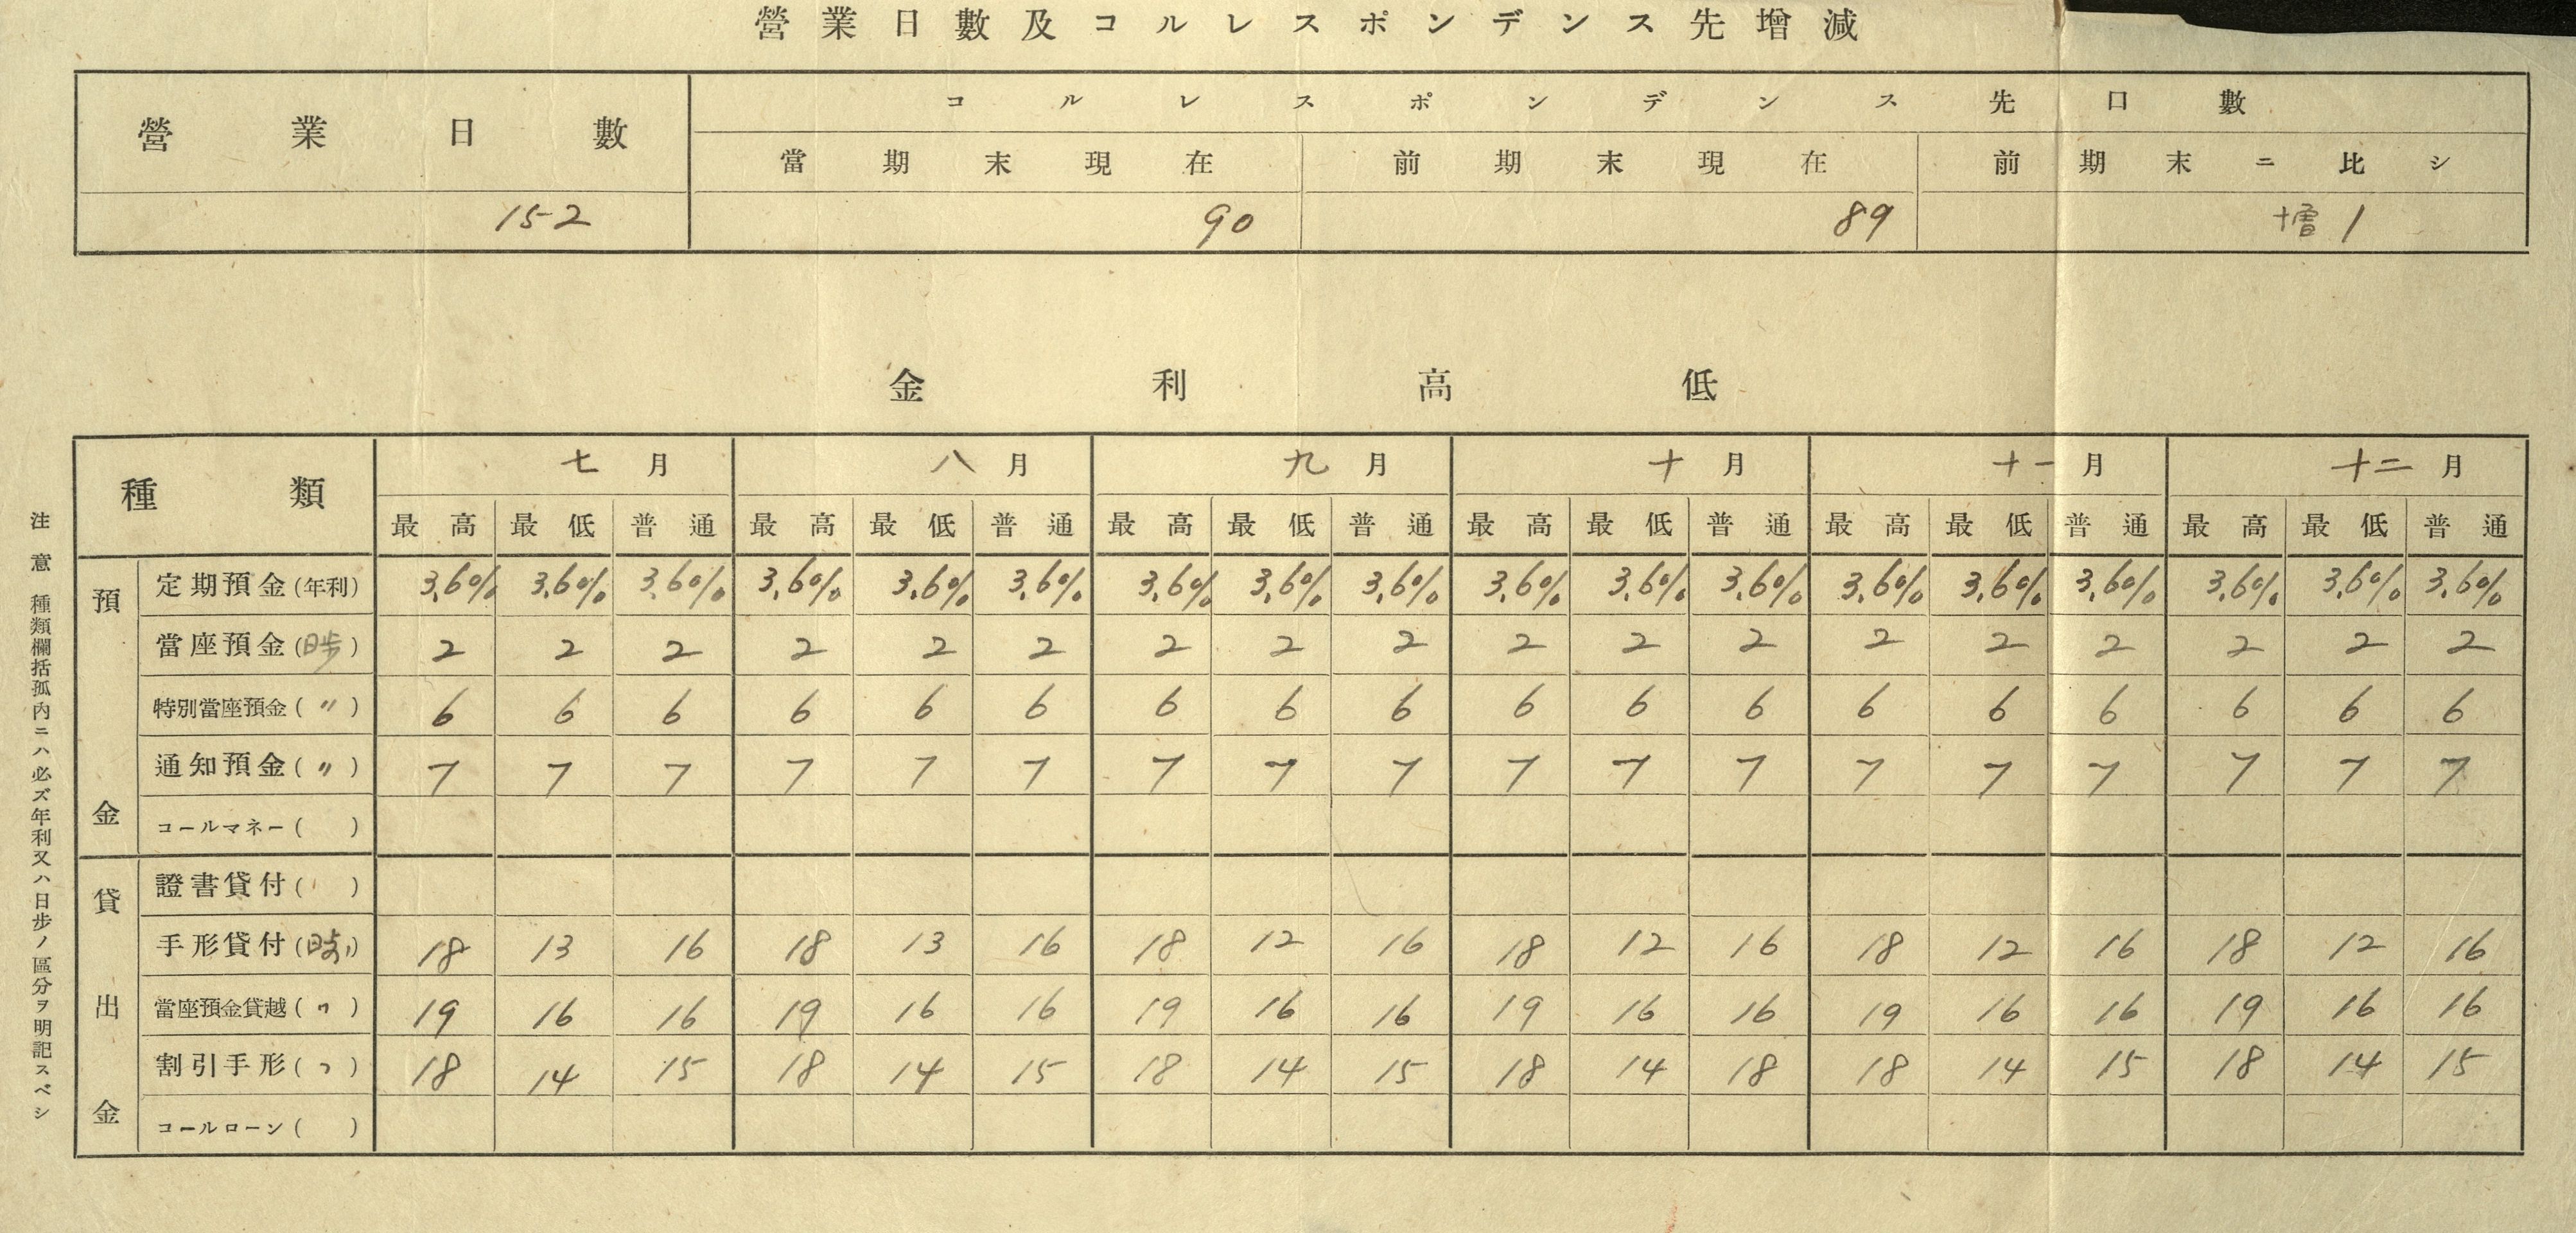 營業日數及コルレスポンデンス先增減
營業日數
コルレスポンデンス先口數
當期末現在 前期末現在 前期末ニ比シ
152 90 89 增 1
金利高低
種類 七月 八月 九月 十月 十一月 十二月
最高 最低 普通 最高 最低 普通 最高 最低 普通 最高 最低 普通 最高 最低 普通 最高 最低 普通
預金
定期預金(年利) 3.60% 3.60% 3.60% 3.60% 3.60% 3.60% 3.60% 3.60% 3.60% 3.60% 3.60% 3.60% 3.60% 3.60% 3.60% 3.60% 3.60% 3.60%
當座預金(日步) 2 2 2 2 2 2 2 2 2 2 2 2 2 2 2 2 2 2
特別當座預金(〃) 6 6 6 6 6 6 6 6 6 6 6 6 6 6 6 6 6 6
通知預金(〃) 7 7 7 7 7 7 7 7 7 7 7 7 7 7 7 7 7 7
コールマネー( )
貸出金
證書貸付( )
手形貸付(日步) 18 13 16 18 13 16 18 12 16 18 12 16 18 12 16 18 12 16
當座預金貸越(〃) 19 16 16 19 16 16 19 16 16 19 16 16 19 16 16 19 16 16
割引手形(〃) 18 14 15 18 14 15 18 14 15 18 14 18 18 14 15 18 14 15
コールローン( )
注意 種類欄括孤內ニハ必ズ年利又ハ日步ノ區分ヲ明記スベシ